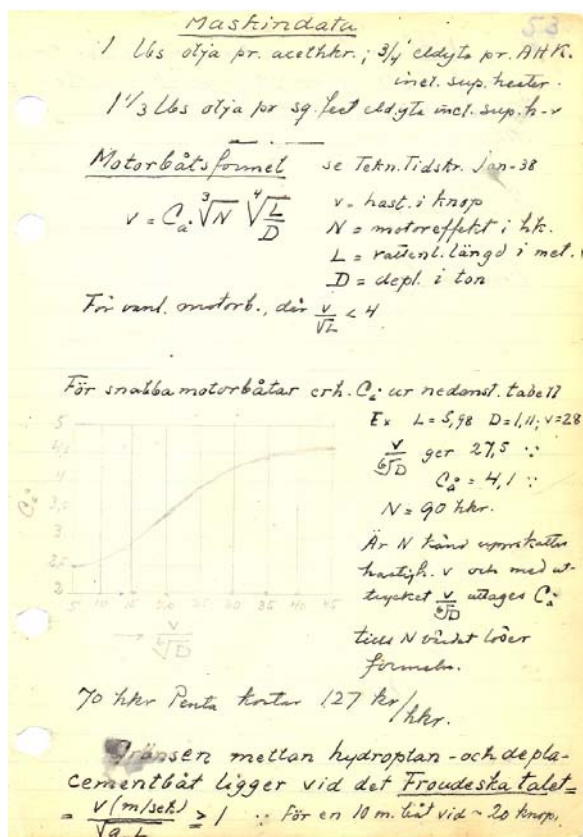 53
Maskindata
1 lbs olja pr. acethkr.; 3/4' eldyta pr. AHK.
incl. sup. heater.
1 1/3 lbs olja pr sq. feet eldyta incl. sup. h-r
Motorbåtsformel se Tekn. Tidskr. Jan-38
v = Cå · ∛N ∜(L/D)
v = hast. i knop
N = motoreffekt i hk.
L = vattenl. längd i met.
D = depl. i ton
För vanl. motorb., där v/√L < 4
För snabba motorbåtar erh. Cå ur nedanst. tabell
5
4,5
4
3,5
3
2,5
2
Cå
5 10 15 20 25 30 35 40 45
→ v/⁶√D
Ex L = 5,98 D = 1,11; v = 28
v/⁶√D ger 27,5 ∵
Cå = 4,1 ∵
N = 90 hkr.
Är N känd uppskattas
hastigh. v och med ut-
trycket v/⁶√D uttages Cå
tills N värdet löser
formeln.
70 hkr Penta kostar 127 kr/hkr.
Gränsen mellan hydroplan- och depla-
cementbåt ligger vid det Froudeska talet=
= v (m/sek)/√g L ≥ 1 ∵ För en 10 m. båt vid ~ 20 knop.